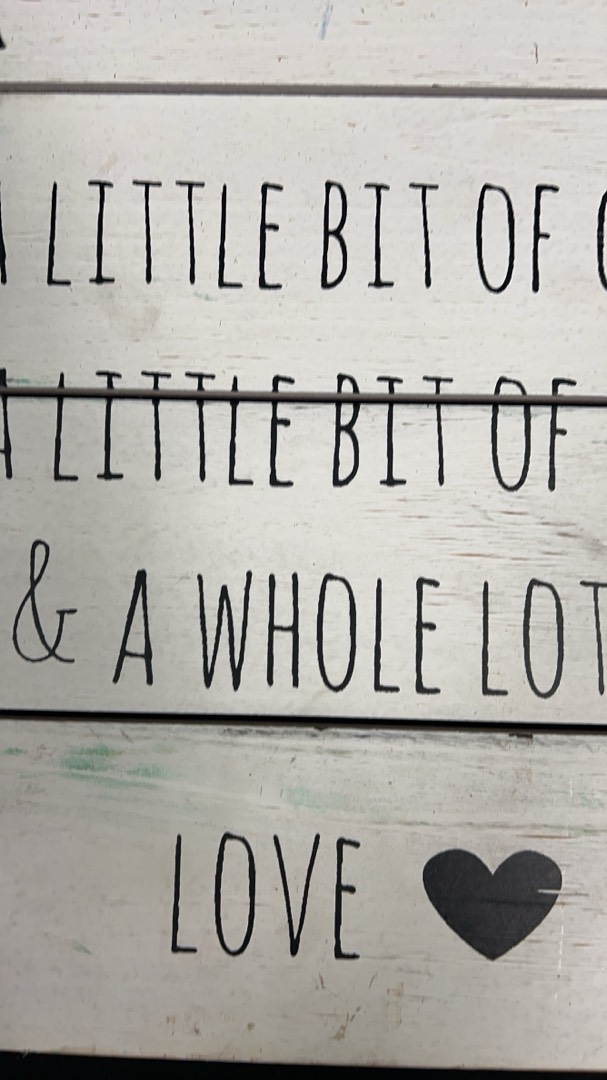 A LITTLE BIT OF
A LITTLE BIT OF
& A WHOLE LOT
LOVE